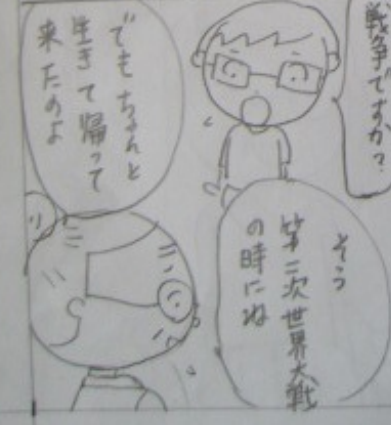 戦争ですか？
そう
第二次世界大戦
の時にね
でもちゃんと
生きて帰って
来たのよ